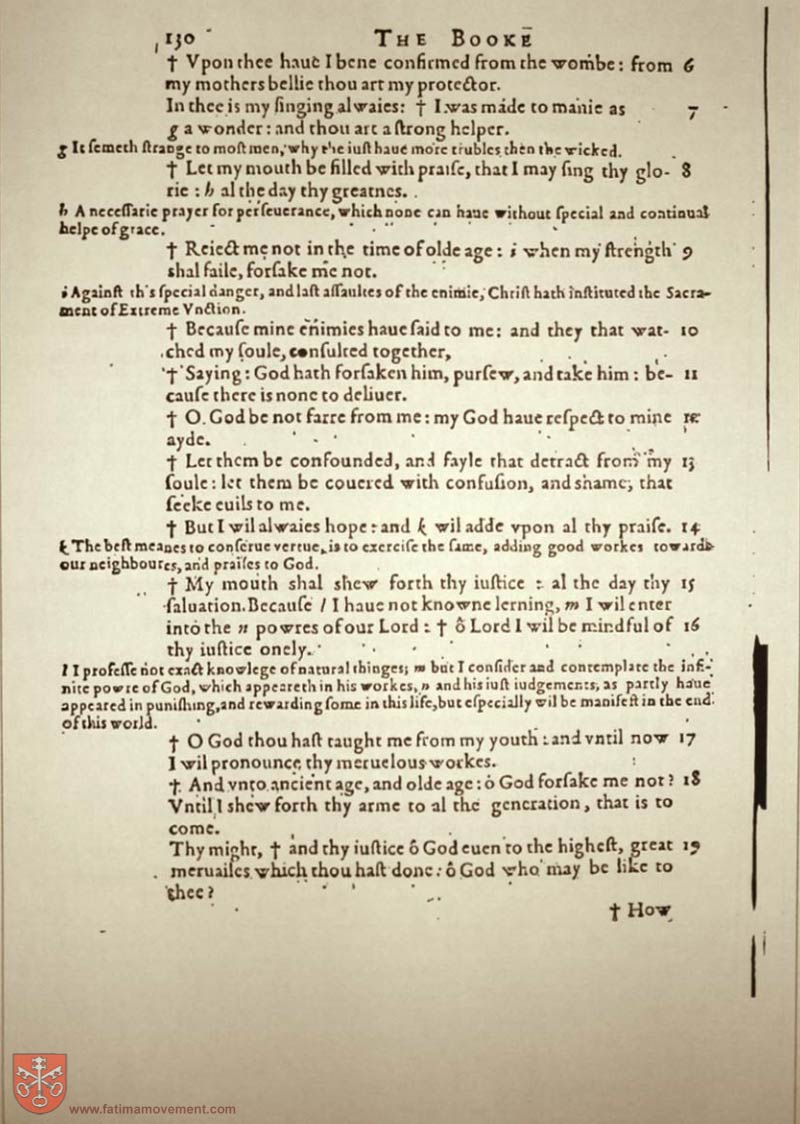 130 THE BOOKE
† Vpon thee haue I bene confirmed from the wombe: from 6
my mothers bellie thou art my protector.
In thee is my ſinging alwaies: † I was made to manie as 7
g a wonder: and thou art a ſtrong helper.
g It ſemeth ſtrange to moſt men, why the iuſt haue more trubles then the wicked.
† Let my mouth be filled with praiſe, that I may ſing thy glo- 8
rie: h al the day thy greatnes.
h A neceſſarie prayer for perſeuerance, which none can haue without ſpecial and continual
helpe of grace.
† Reiect me not in the time of olde age: i when my ſtrength 9
shal faile, forſake me not.
i Againſt th's ſpecial danger, and laſt aſſaultes of the enimie, Chriſt hath inſtituted the Sacra-
ment of Extreme Vnction.
† Becauſe mine enimies haue ſaid to me: and they that wat- 10
ched my ſoule, conſulted together,
† Saying: God hath forſaken him, purſew, and take him: be- 11
cauſe there is none to deliuer.
† O God be not farre from me: my God haue reſpect to mine 12
ayde.
† Let them be confounded, and fayle that detract from my 13
ſoule: let them be couered with confuſion, and shame, that
ſeeke euils to me.
† But I wil alwaies hope: and k wil adde vpon al thy praiſe. 14
k The beſt meanes to conſerue vertue, is to exerciſe the ſame, adding good workes towards
our neighboures, and praiſes to God.
† My mouth shal shew forth thy iuſtice: al the day thy 15
ſaluation. Becauſe l I haue not knowne lerning, m I wil enter
into the n powres of our Lord: † ô Lord I wil be mindful of 16
thy iuſtice onely.
l I profeſſe not exact knowlege of natural thinges; m but I conſider and contemplate the infi-
nite powre of God, which appeareth in his workes, n and his iuſt iudgements, as partly haue
appeared in punishing, and rewarding ſome in this life, but eſpecially wil be manifeſt in the end
of this world.
† O God thou haſt taught me from my youth: and vntil now 17
I wil pronounce thy meruelous workes.
† And vnto ancient age, and olde age: ô God forſake me not? 18
Vntil I shew forth thy arme to al the generation, that is to
come.
Thy might, † and thy iuſtice ô God euen to the higheſt, great 19
meruailes which thou haſt done: ô God who may be like to
thee?
† How
www.fatimamovement.com